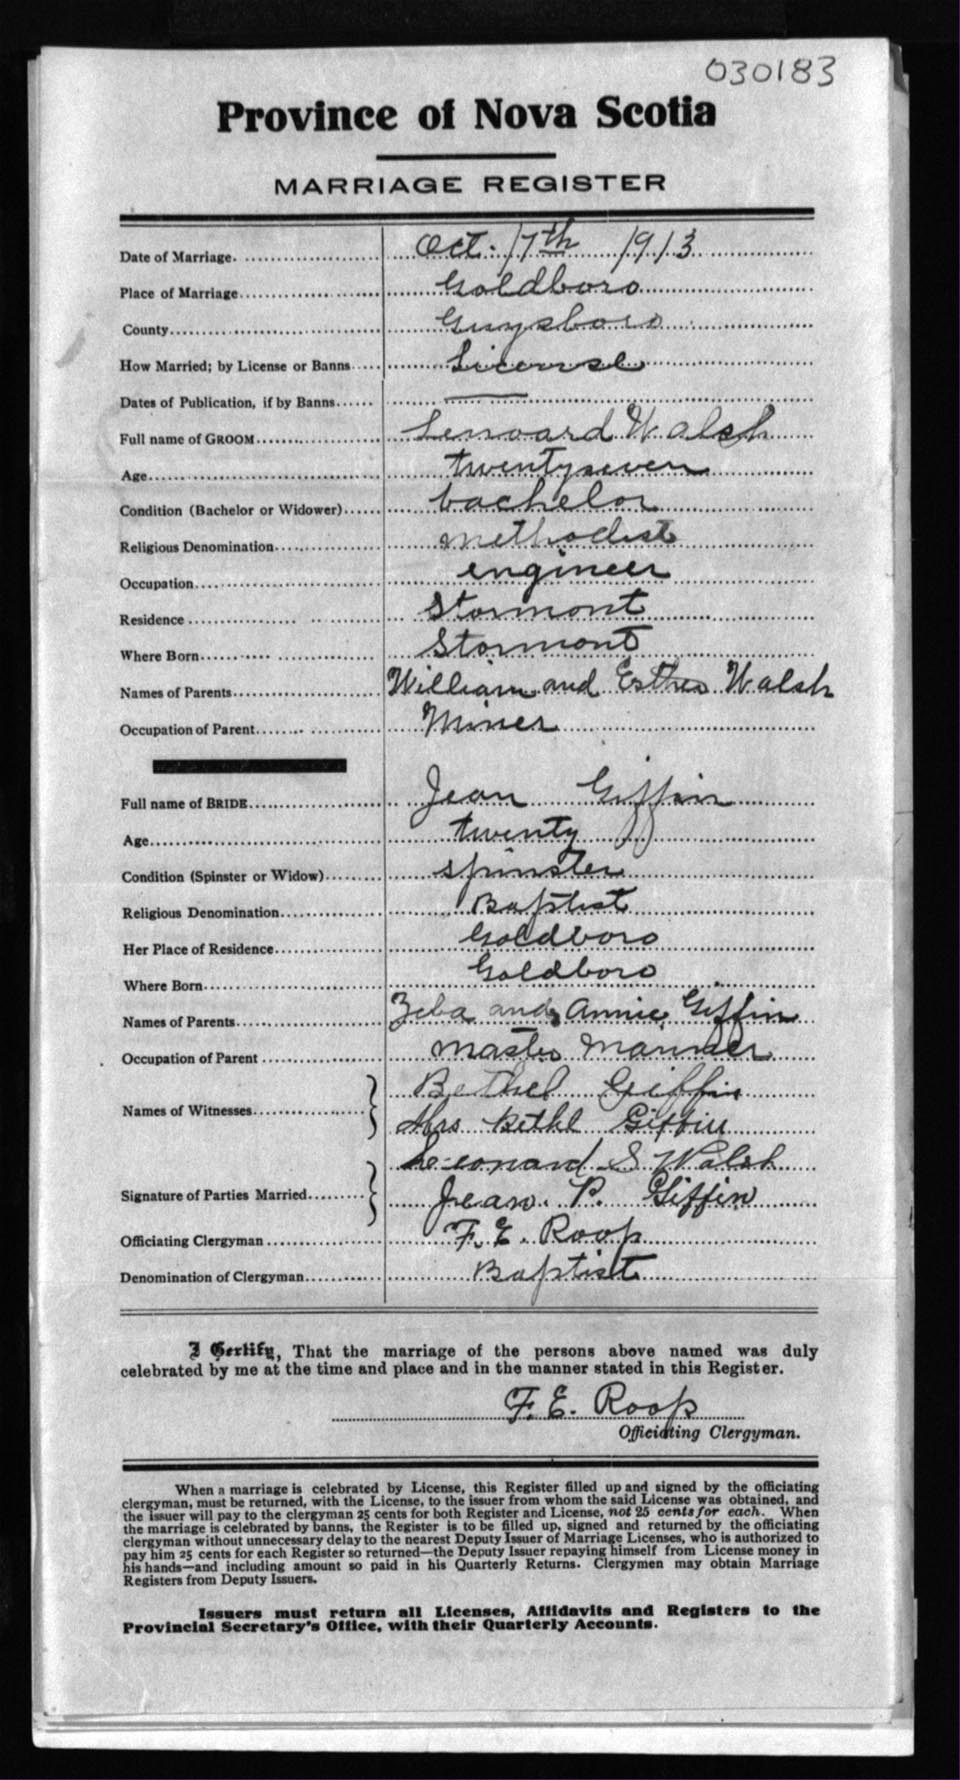 030183
Province of Nova Scotia
MARRIAGE REGISTER
Date of Marriage. Oct. 17th 1913
Place of Marriage Goldboro
County Guysboro
How Married; by License or Banns License
Dates of Publication, if by Banns —
Full name of GROOM Lenoard Walsh
Age twentyseven
Condition (Bachelor or Widower) bachelor
Religious Denomination methodist
Occupation engineer
Residence Stormont
Where Born Stormont
Names of Parents William and Esther Walsh
Occupation of Parent Miner
Full name of BRIDE Jean Giffin
Age twenty
Condition (Spinster or Widow) spinster
Religious Denomination Baptist
Her Place of Residence Goldboro
Where Born Goldboro
Names of Parents Zeba and Annie Giffin
Occupation of Parent Master Mariner
Names of Witnesses Bethel Giffin
Mrs Bethl Giffin
Signature of Parties Married Leonard S Walsh
Jean P. Giffin
Officiating Clergyman F. E. Roop
Denomination of Clergyman Baptist
I Certify, That the marriage of the persons above named was duly
celebrated by me at the time and place and in the manner stated in this Register.
F. E. Roop
Officiating Clergyman.
When a marriage is celebrated by License, this Register filled up and signed by the officiating
clergyman, must be returned, with the License, to the issuer from whom the said License was obtained, and
the issuer will pay to the clergyman 25 cents for both Register and License, not 25 cents for each. When
the marriage is celebrated by banns, the Register is to be filled up, signed and returned by the officiating
clergyman without unnecessary delay to the nearest Deputy Issuer of Marriage Licenses, who is authorized to
pay him 25 cents for each Register so returned—the Deputy Issuer repaying himself from License money in
his hands—and including amount so paid in his Quarterly Returns. Clergymen may obtain Marriage
Registers from Deputy Issuers.
Issuers must return all Licenses, Affidavits and Registers to the
Provincial Secretary's Office, with their Quarterly Accounts.